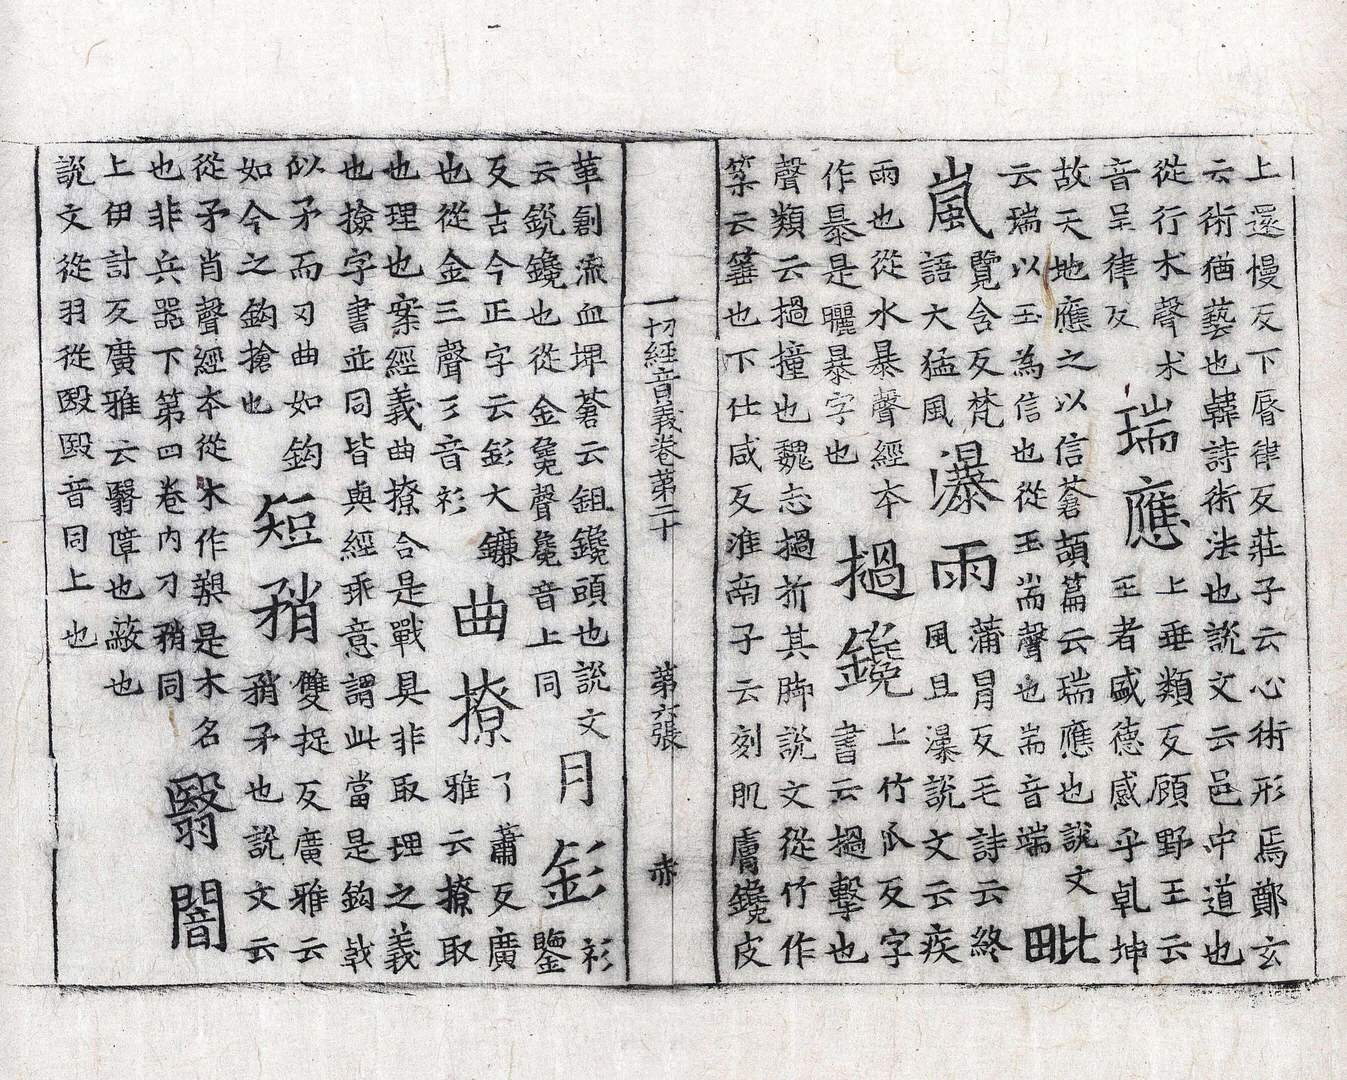 上還慢反下脣律反莊子云心術形焉鄭玄
云術猶藝也韓詩術法也說文云邑中道也
從行朮聲朮
音呈律反
瑞應
上垂類反顧野王云
王者盛德感乎乹坤
故天地應之以信蒼頡篇云瑞應也說文
云瑞以玉為信也從玉耑聲也耑音端
毗
嵐
覽含反梵
語大猛風
瀑雨
蒲冒反毛詩云終
風且瀑說文云疾
雨也從水暴聲經本
作暴是曬暴字也
撾鑱
上竹瓜反字
書云撾擊也
聲類云撾撞也魏志撾折其脚說文從竹作
築云箠也下仕咸反淮南子云刻肌膚鑱皮
一切經音義卷第二十 第六張 赤
革創流血埤蒼云鉏鑱頭也說文
云銳鑱也從金毚聲毚音上同
月釤
衫
鑒
反古今正字云釤大鐮
也從金三聲彡音衫
曲撩
了蕭反廣
雅云撩取
也理也案經義曲撩合是戰具非取理之義
也撿字書並同皆與經乖意謂此當是鈎戟
似矛而刃曲如鈎
如今之鈎搶也
短矟
雙捉反廣雅云
矟矛也說文云
從矛肖聲經本從木作槊是木名
也非兵器下第四卷內刀矟同
翳闇
上伊計反廣雅云翳障也蔽也
說文從羽從殹殹音同上也